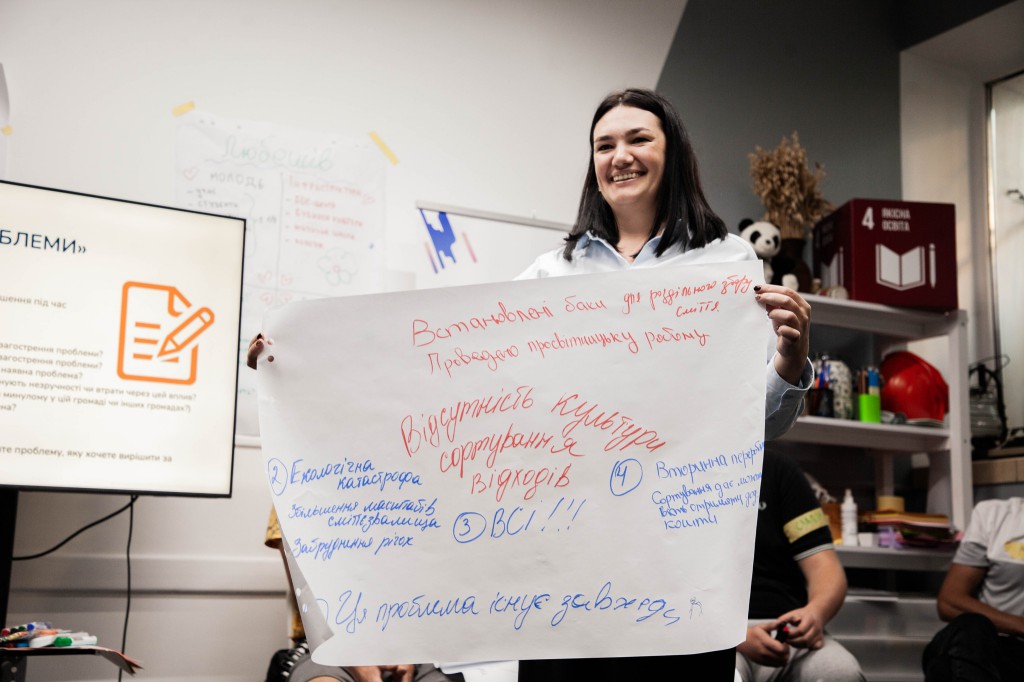 БЛЕМИ»
шення під час
загострення проблеми?
загострення проблеми?
наявна проблема?
нують незручності чи втрати через цей вплив?
минулому у цій громаді чи інших громадах?)
на?
те проблему, яку хочете вирішити за
МОЛОДЬ
4 ЯКІСНА
ОСВІТА
Встановлені баки для роздільного збору
сміття.
Проведено просвітницьку роботу
Відсутність культури
сортування
відходів
2 Екологічна
катастрофа
Збільшення масштабів
сміттєзвалища
Забруднення річок
3 ВСІ!!!
4 Вторинна переробк
Сортування дає можли
вість отримати
кошти
Ця проблема існує завжди